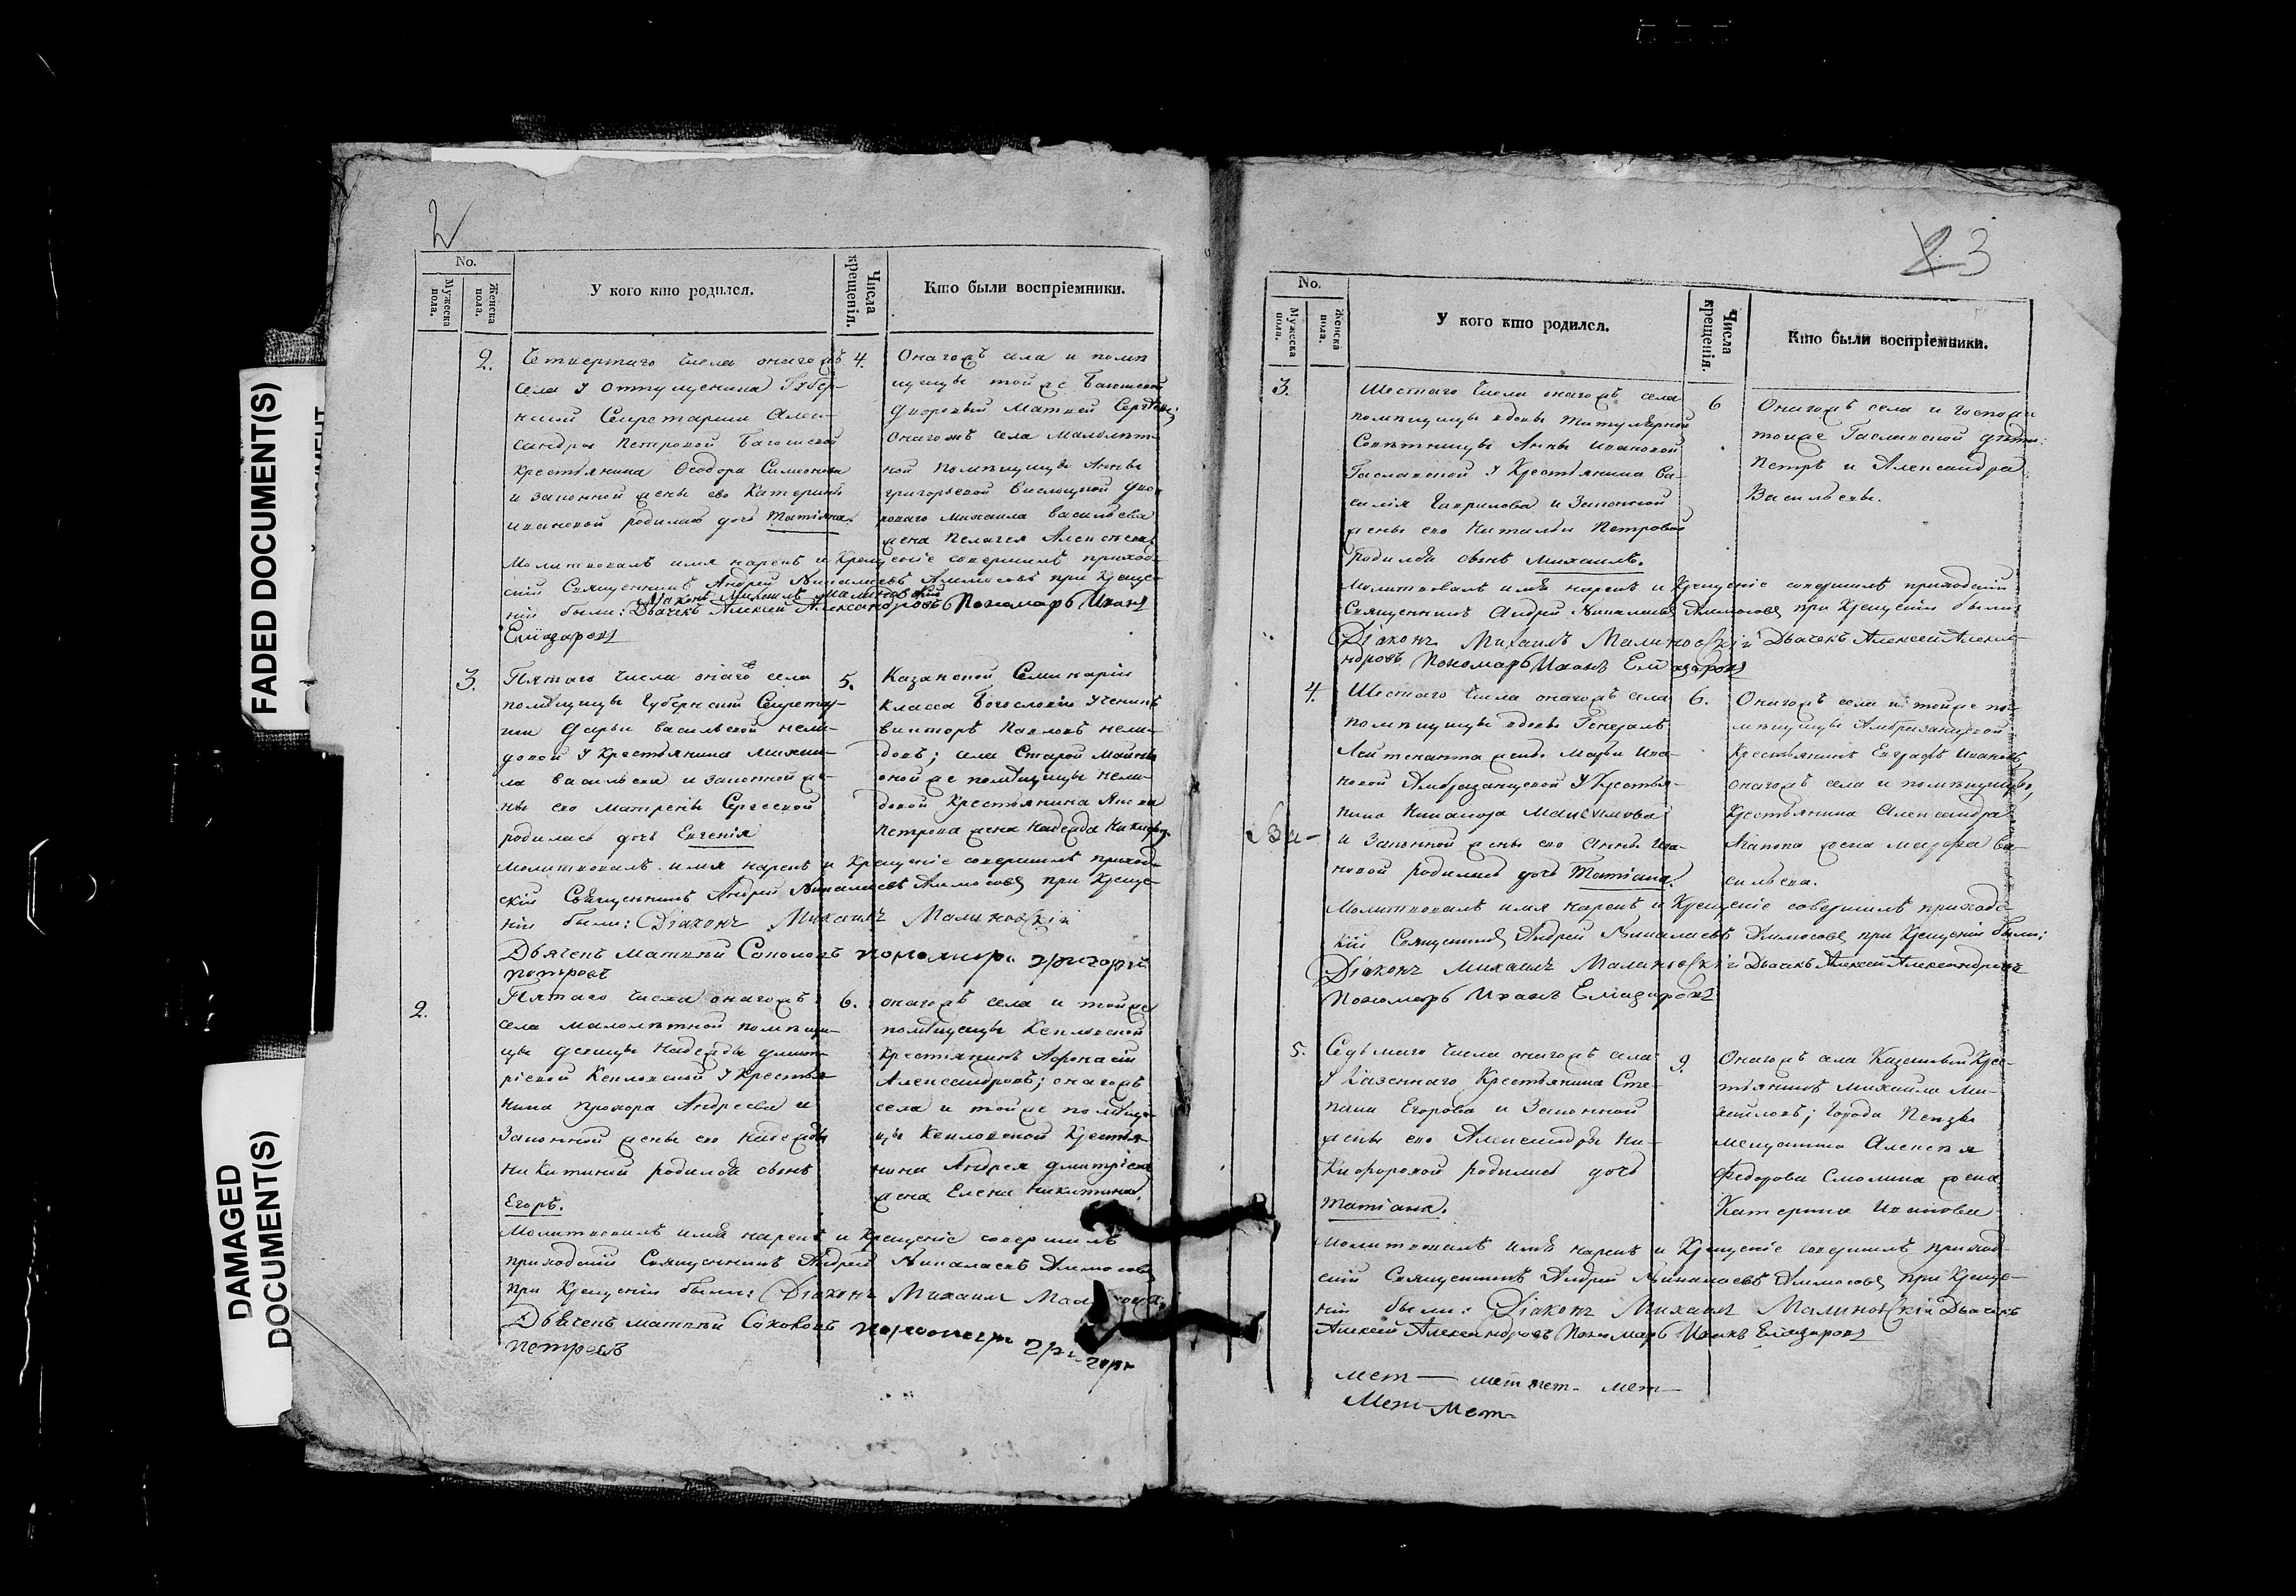 FADED DOCUMENT(S)
DAMAGED
DOCUMENT(S)
2
No.
Мужеска пола.
Женска пола.
У кого кто родился.
Числа крещенія.
Кто были воспріемники.
2.
Четвертаго числа онагожъ
села у
Секретарши Алек-
сандры Петровой
Крестьянина Ѳеодора Симеонова
и законной жены его Катерины
Ивановой родилась дочь Татіана.
4.
Онагожъ села и помѣ
щицы той же
дворовый Матвей Сергѣевъ;
Онагожъ села малолѣт-
ной Помѣщицы Анны
Григорьевой дво-
роваго Михаила Васильева
жена Пелагея Алексѣева
Молитвовалъ имя нарекъ и Крещеніе совершилъ приход-
скій Священникъ Андрей Николаевъ при Креще-
Діаконъ Михаилъ Малиновскій
ніи были: Дьячекъ Алексей Александровъ Пономарь Иванъ
Елиазаровъ
3.
Пятаго числа онагожъ села
помѣщицы Губернской Секретар-
ши Дарьи Васильевой Нели-
довой у Крестьянина Михаи-
ла Васильева и законной же-
ны его Матрены Сергеевой
родилась дочь Евгенія
5.
Казанской Семинаріи
класса Богословіи Ученикъ
Викторъ Павловъ Нели-
довъ; села Старой Майны
оной же помѣщицы Нели-
довой Крестьянина Якова
Петрова жена Надежда
Молитвовалъ имя нарекъ и Крещеніе совершилъ приход-
скій Священникъ Андрей Николаевъ при Креще-
ніи были: Діаконъ Михаилъ Малиновскій
Дьячекъ Матвей Соколовъ пономарь Григорій
Петровъ
2.
Пятаго числа онагожъ
села малолѣтной помѣщи-
цы девицы Надежды Дмит-
ріевой у Крестья-
нина Прохора Андреева и
Законной жены его Надежды
Никитиной родился сынъ
Егоръ.
6.
онагожъ села и тойже
помѣщицы
Крестьянинъ Афонасій
Александровъ; онагожъ
села и той же помѣщи-
цы Крестья-
нина Андрея Дмитріева
жена Елена Никитина.
Молитвовалъ имя нарекъ и Крещеніе совершилъ
приходскій Священникъ Андрей Николаевъ
при Крещеніи были: Діаконъ Михаилъ
Дьячекъ Матвей Соколовъ пономарь Григорій
Петровъ
2 3
No.
Мужеска пола.
Женска пола.
У кого кто родился.
Числа крещенія.
Кто были воспріемники.
3.
Шестаго числа онагожъ села
помѣщицы вдовы Титулярной
Советницы Анны Ивановой
у Крестьянина Ва-
силія Гаврилова и Законной
жены его Натальи Петровой
родился сынъ Михаилъ.
6
Онагожъ села и
дети:
Петръ и Александра
Васильевы.
Молитвовалъ имя нарекъ и Крещеніе совершилъ приходскій
Священникъ Андрей Николаевъ при Крещеніи были:
Діаконъ Михаилъ Малиновскій Дьячекъ Алексей Алекса-
ндровъ Пономарь Иванъ Елиазаровъ
4.
Шестаго числа онагожъ села
помѣщицы вдовы Генералъ
Лейтенанта жены Марьи Ива-
новой у Крестья-
нина Максимова
и Законной жены его Анны Ива-
новой родилась дочь Татіана.
6.
Онагожъ села и тойже по-
мѣщицы
Крестьянинъ Евграфъ Ивановъ,
онагожъ села и помѣщицы,
Крестьянина Александра
жена Ва-
сильева.
Молитвовалъ имя нарекъ и Крещеніе совершилъ приходс-
кій Священникъ Андрей Николаевъ при Крещеніи были:
Діаконъ Михаилъ Малиновскій Дьячекъ Алексей Александровъ
Пономарь Иванъ Елиазаровъ
5.
Седьмаго числа онагожъ села
у Казеннаго Крестьянина Сте-
пана Егорова и Законной
жены его Александры Ни-
кифоровой родилась дочь
Татіана.
9.
Онагожъ села Казенный Кре-
стьянинъ Михаило Ми-
хайловъ; города Пензы
мещанина Алексея
Федорова Смолина жена
Катерина Иванова
Молитвовалъ имя нарекъ и Крещеніе совершилъ приход-
скій Священникъ Андрей Николаевъ при Креще-
ніи были: Діаконъ Михаилъ Малиновскій Дьячекъ
Алексей Александровъ Пономарь Иванъ Елиазаровъ